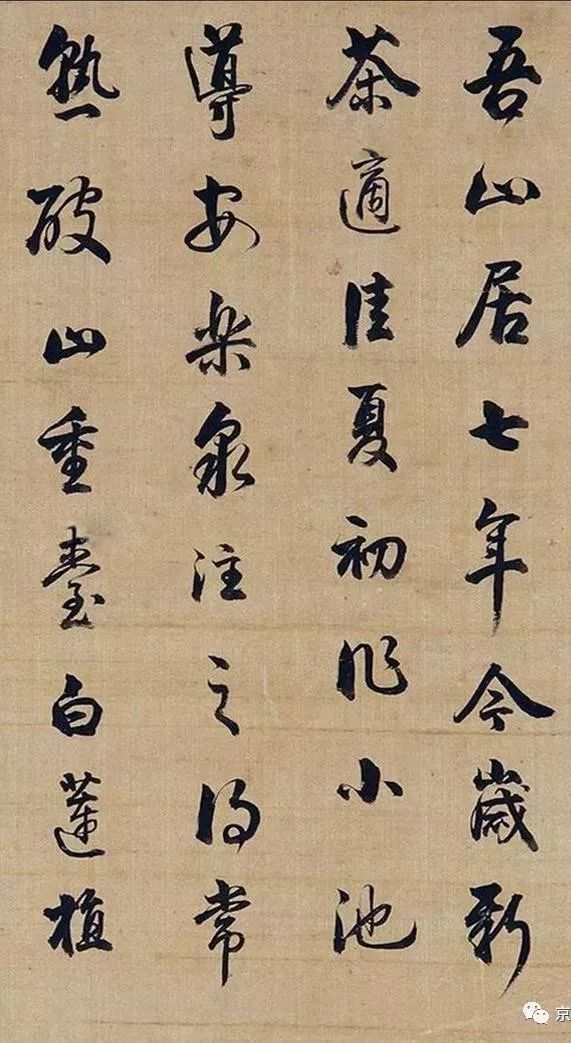 吾山居七年今歲新
茶適佳夏初作小池
導安樂泉注之得常
熟破山重臺白蓮植
京